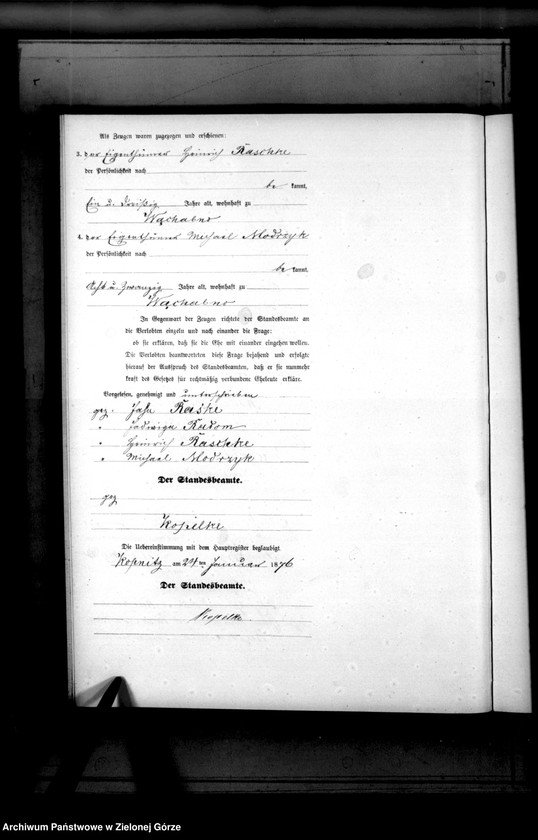 Als Zeugen waren zugegegen und erschienen:
3. der Eigenthümer Heinrich Raschke
der Persönlichkeit nach
be kannt,
Ein u. dreißig Jahre alt, wohnhaft zu
Wąchabno
4. der Eigenthümer Michael Modrzyk
der Persönlichkeit nach
be kannt,
Acht u. zwanzig Jahre alt, wohnhaft zu
Wąchabno
In Gegenwart der Zeugen richtete der Standesbeamte an
die Verlobten einzeln und nach einander die Frage:
ob sie erklären, daß sie die Ehe mit einander eingehen wollen.
Die Verlobten beantworteten diese Frage bejahend und erfolgte
hierauf der Ausspruch des Standesbeamten, daß er sie nunmehr
kraft des Gesetzes für rechtmäßig verbundene Eheleute erkläre.
Vorgelesen, genehmigt und unterschrieben
gez. Raśke
" Jadwiga Rudom
" Heinrich Raschke
" Michael Modrzyk
Der Standesbeamte.
gez
Kopelke
Die Uebereinstimmung mit dem Hauptregister beglaubigt
Kopnitz am 24 ten Januar 1876
Der Standesbeamte.
Kopelke
Archiwum Państwowe w Zielonej Górze